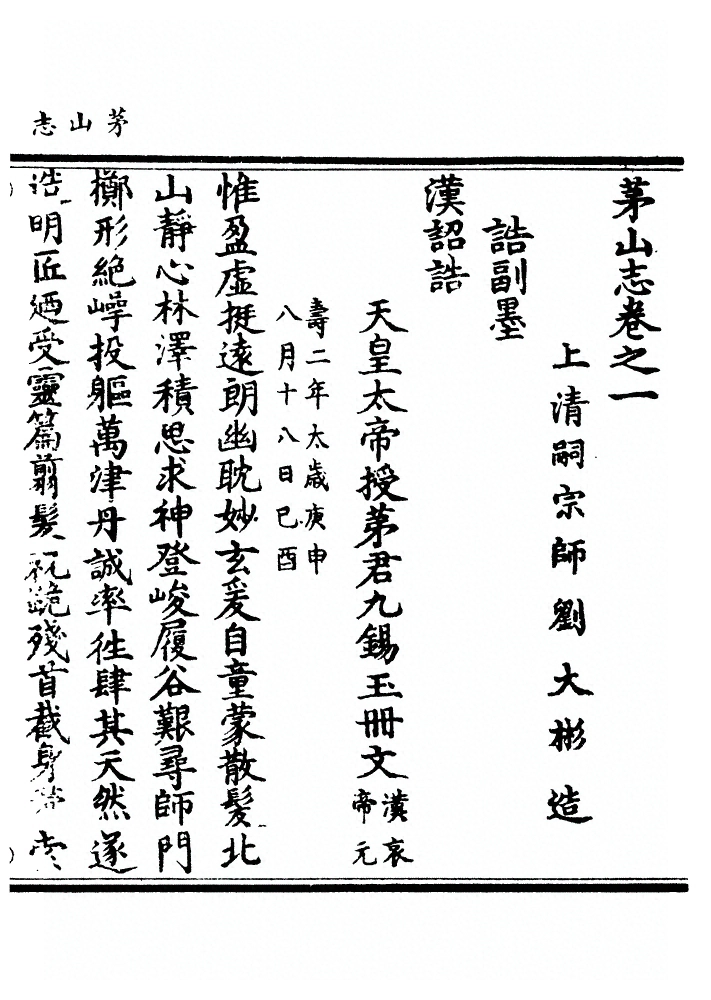 茅山志
茅山志卷之一
上清嗣宗師劉大彬造
誥副墨
漢詔誥
天皇太帝授茅君九錫玉冊文漢哀帝元
壽二年太歲庚申
八月十八日己酉
惟盈虛挺遠朗幽耽妙玄爰自童蒙散髮北
山靜心林澤積思求神登峻履谷艱尋師門
擲形絕崿投軀萬津丹誠率往肆其天然遂
造明匠迺受靈篇翦髮祝跪殘首截身